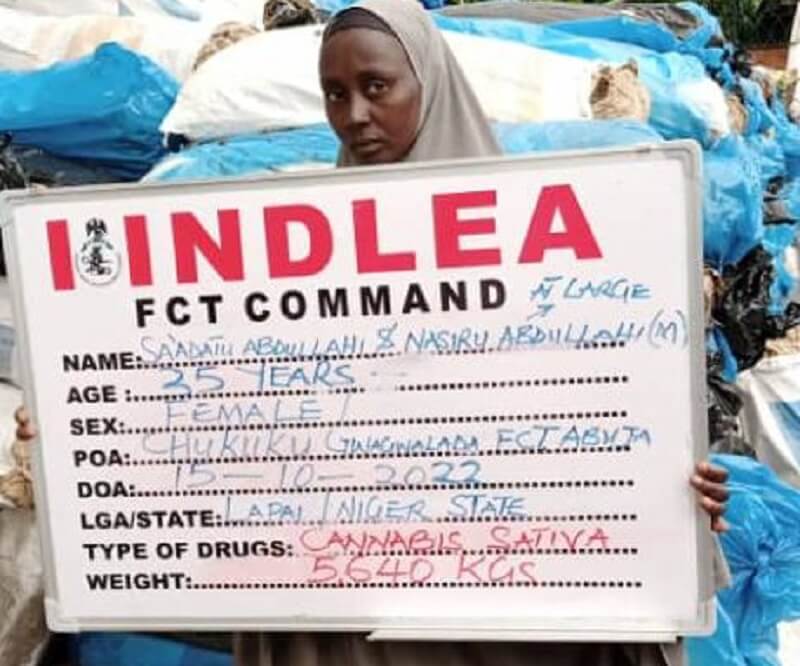 NDLEA
FCT COMMAND AT LARGE
NAME: SA'ADATU ABDULLAHI & NASIRU ABDULLAHI (M)
AGE: 35 YEARS
SEX: FEMALE
POA: CHUKUKU GWAGWALADA FCT ABUJA
DOA: 15-10-2022
LGA/STATE: LAPAI / NIGER STATE
TYPE OF DRUGS: CANNABIS SATIVA
WEIGHT: 5,640 KGS